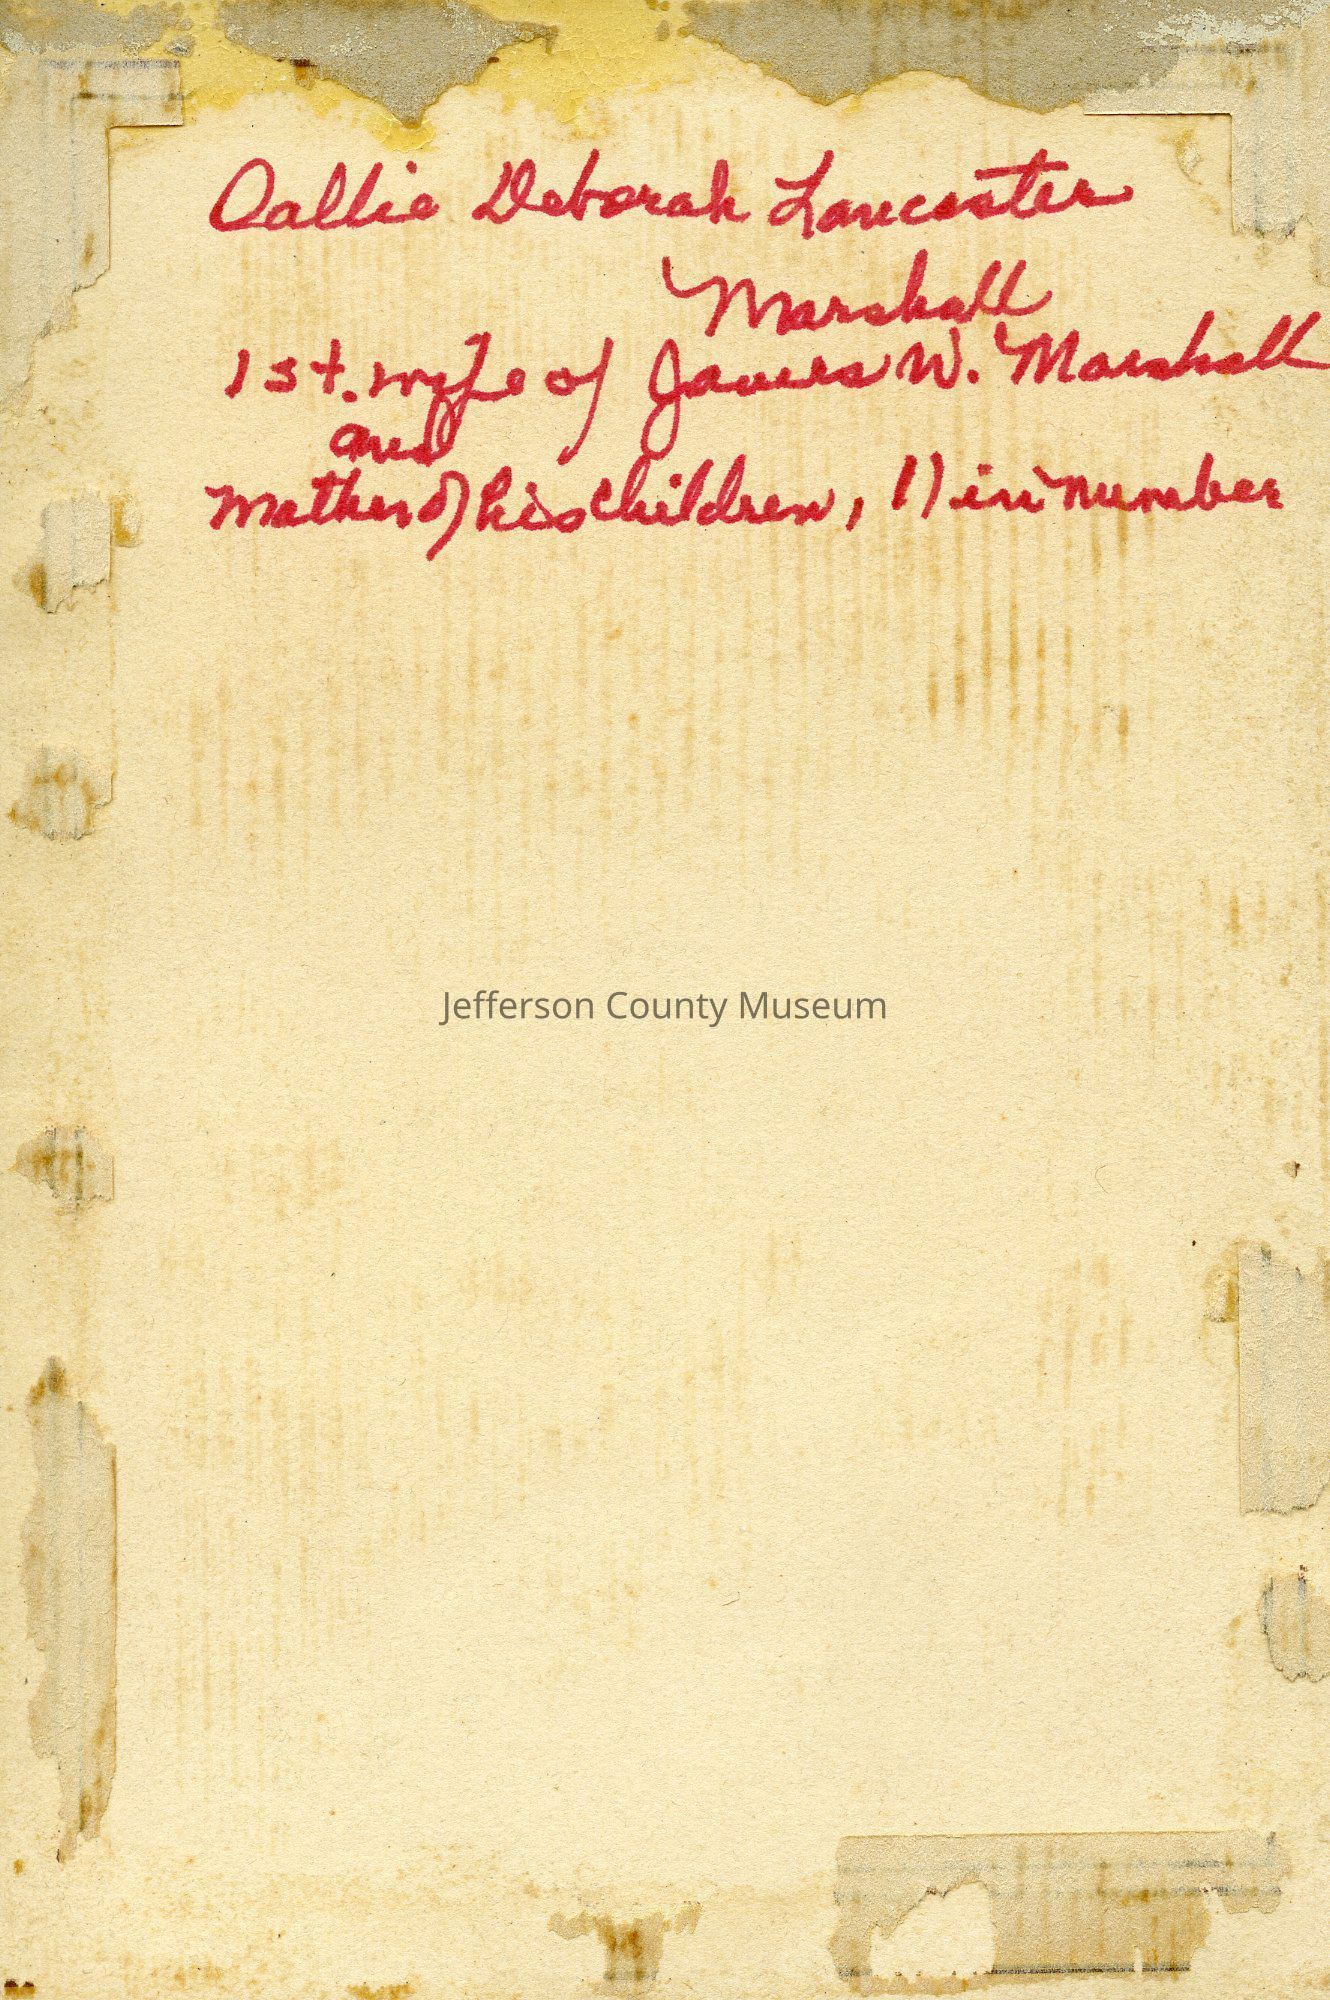 Callie Deborah Lancaster
Marshall
1st. wife of James W. Marshall
and
Mother of his children, 11 in number
Jefferson County Museum